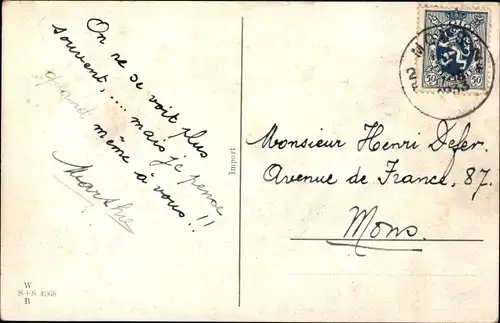 On ne se voit plus
souvent, .... mais je pense
quand même à vous!!
Marthe
W
S+S 4268
B
Import
50 50
Monsieur Henri Defer.
Avenue de France, 87.
Mons.